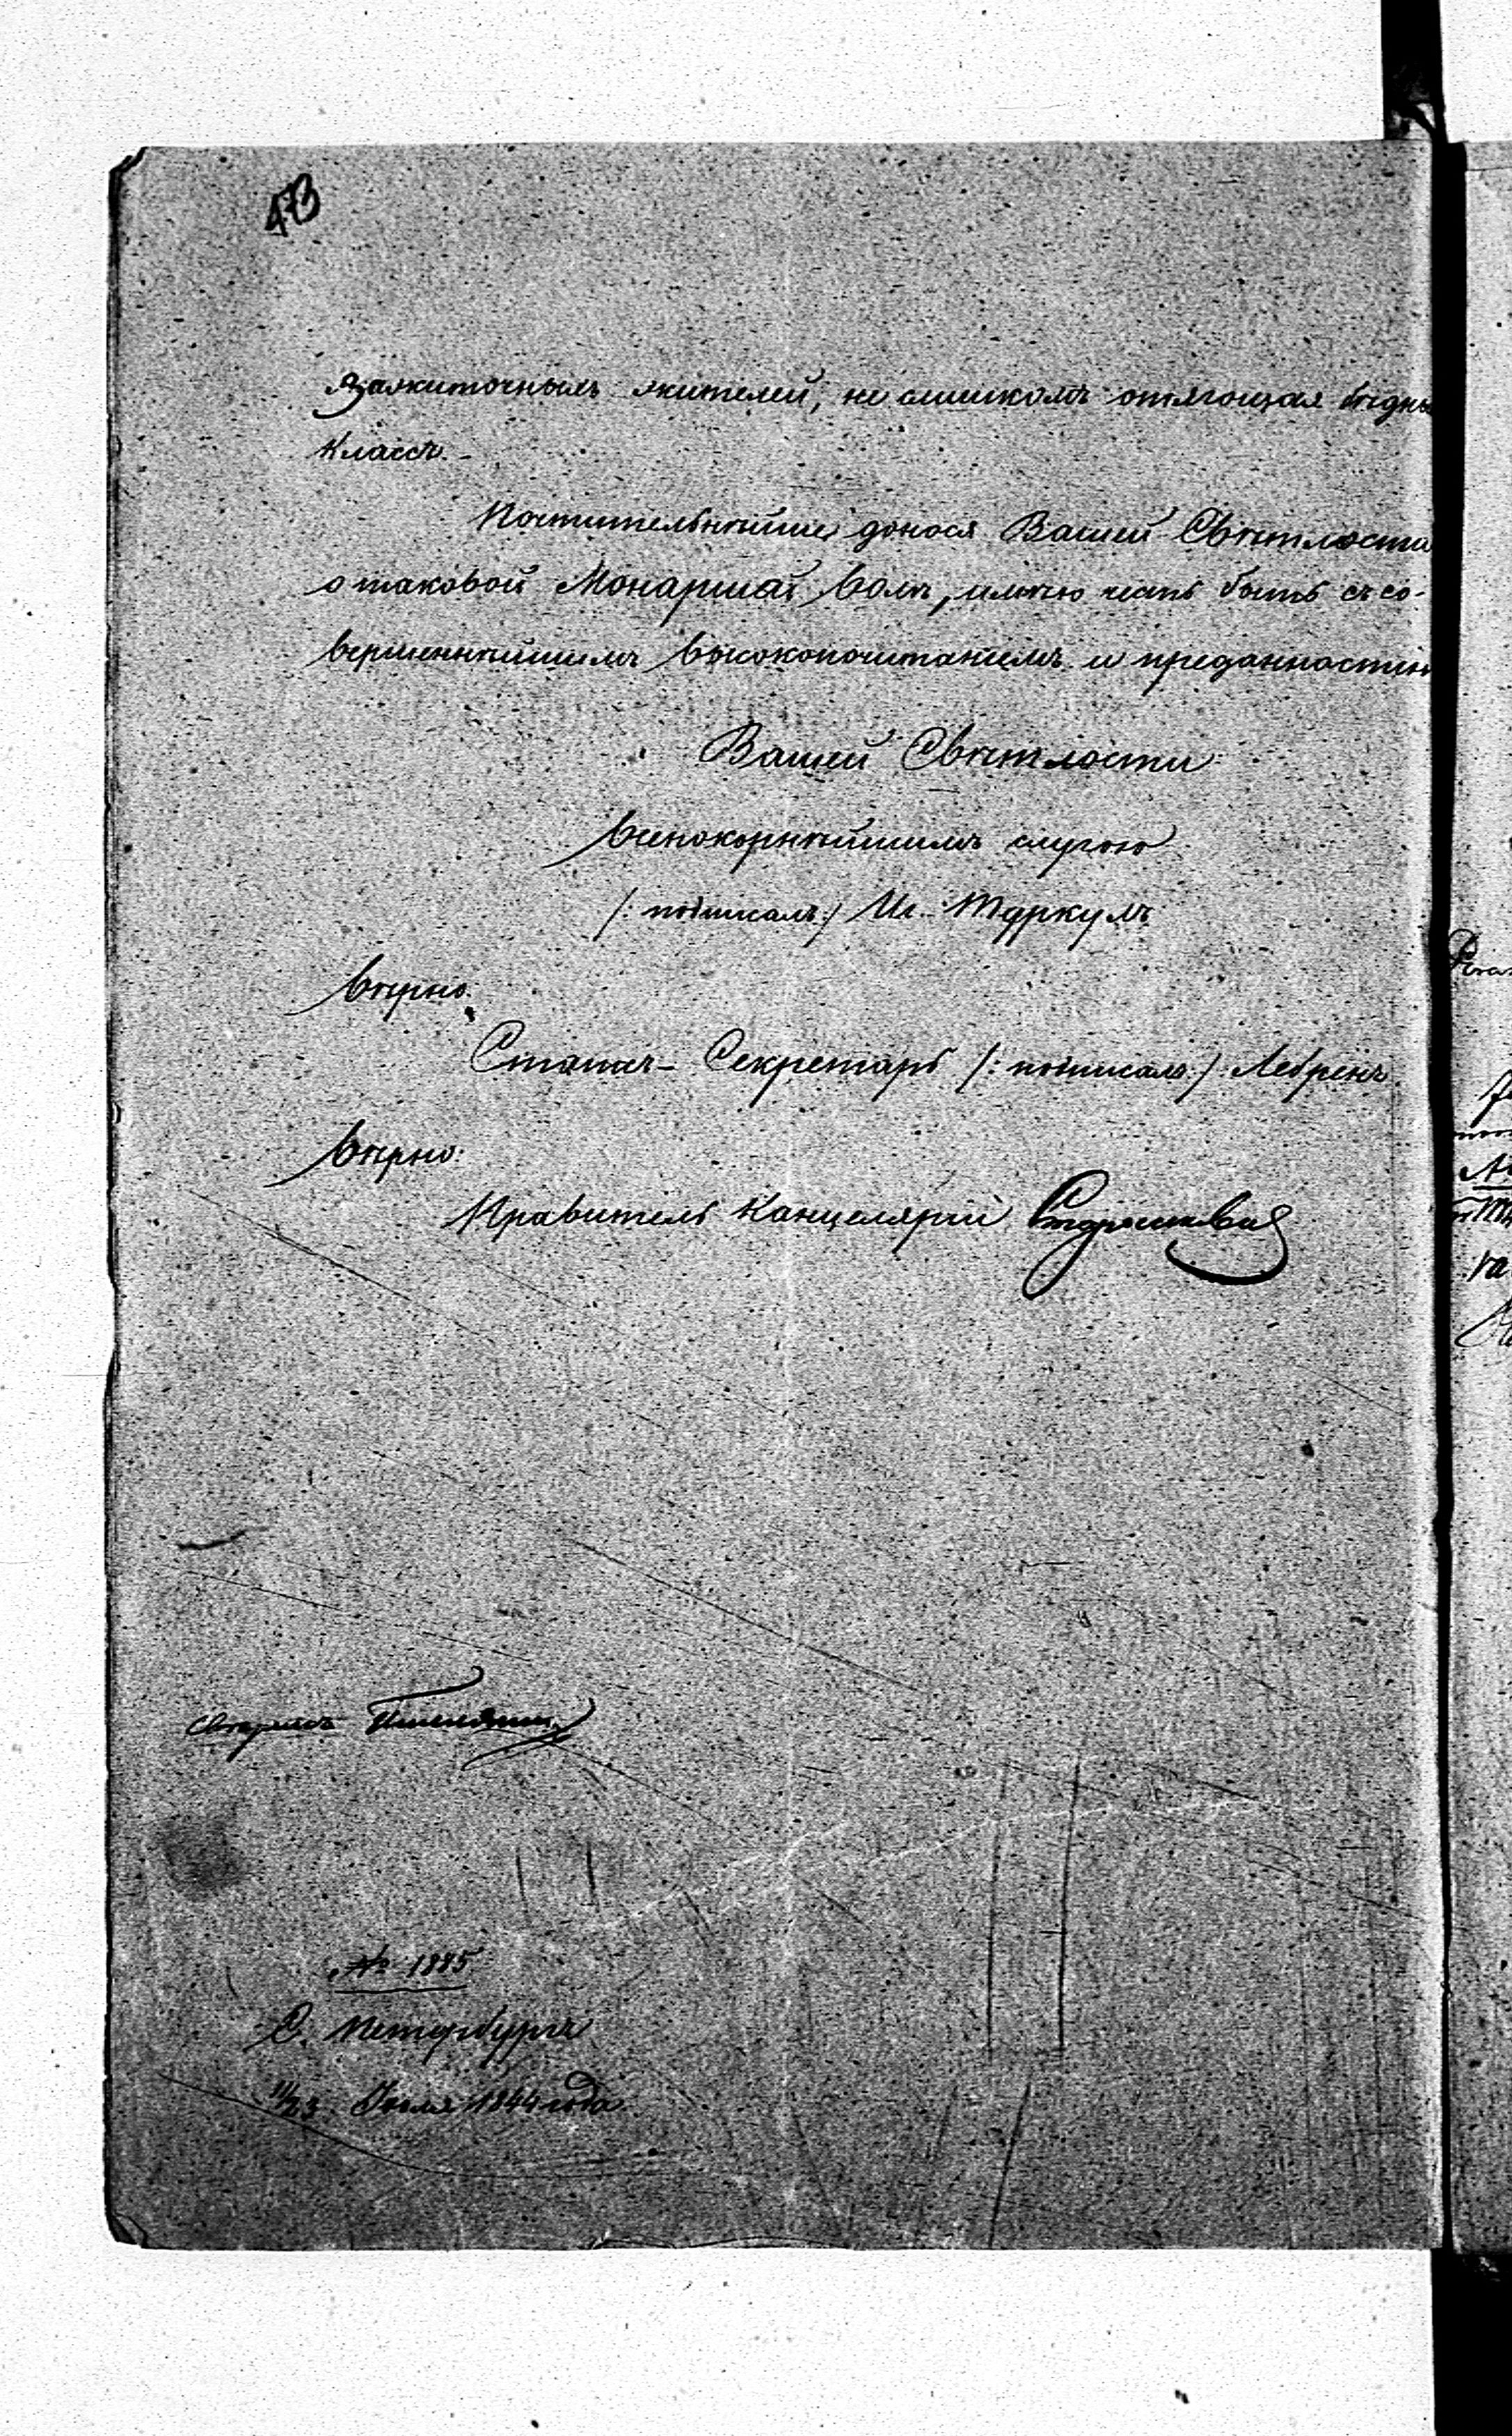 473
зажиточныхъ жителей, не слишкомъ отягощая бѣдны
классъ.
Почтительнѣйше донося Вашей Свѣтлости
о таковой Монаршей волѣ, имѣю честь быть съ со-
вершеннѣйшимъ высокопочитаніемъ и преданностію
Вашей Свѣтлости
всепокорнѣйшимъ слугою
/: подписалъ :/ Иг. Туркулъ
Вѣрно:
Статсъ-Секретарь /: подписалъ :/ Лебренъ
Вѣрно:
Правитель Канцеляріи
свѣрялъ
№ 1885
С. Петербургъ
11/23 Іюля 1844 года